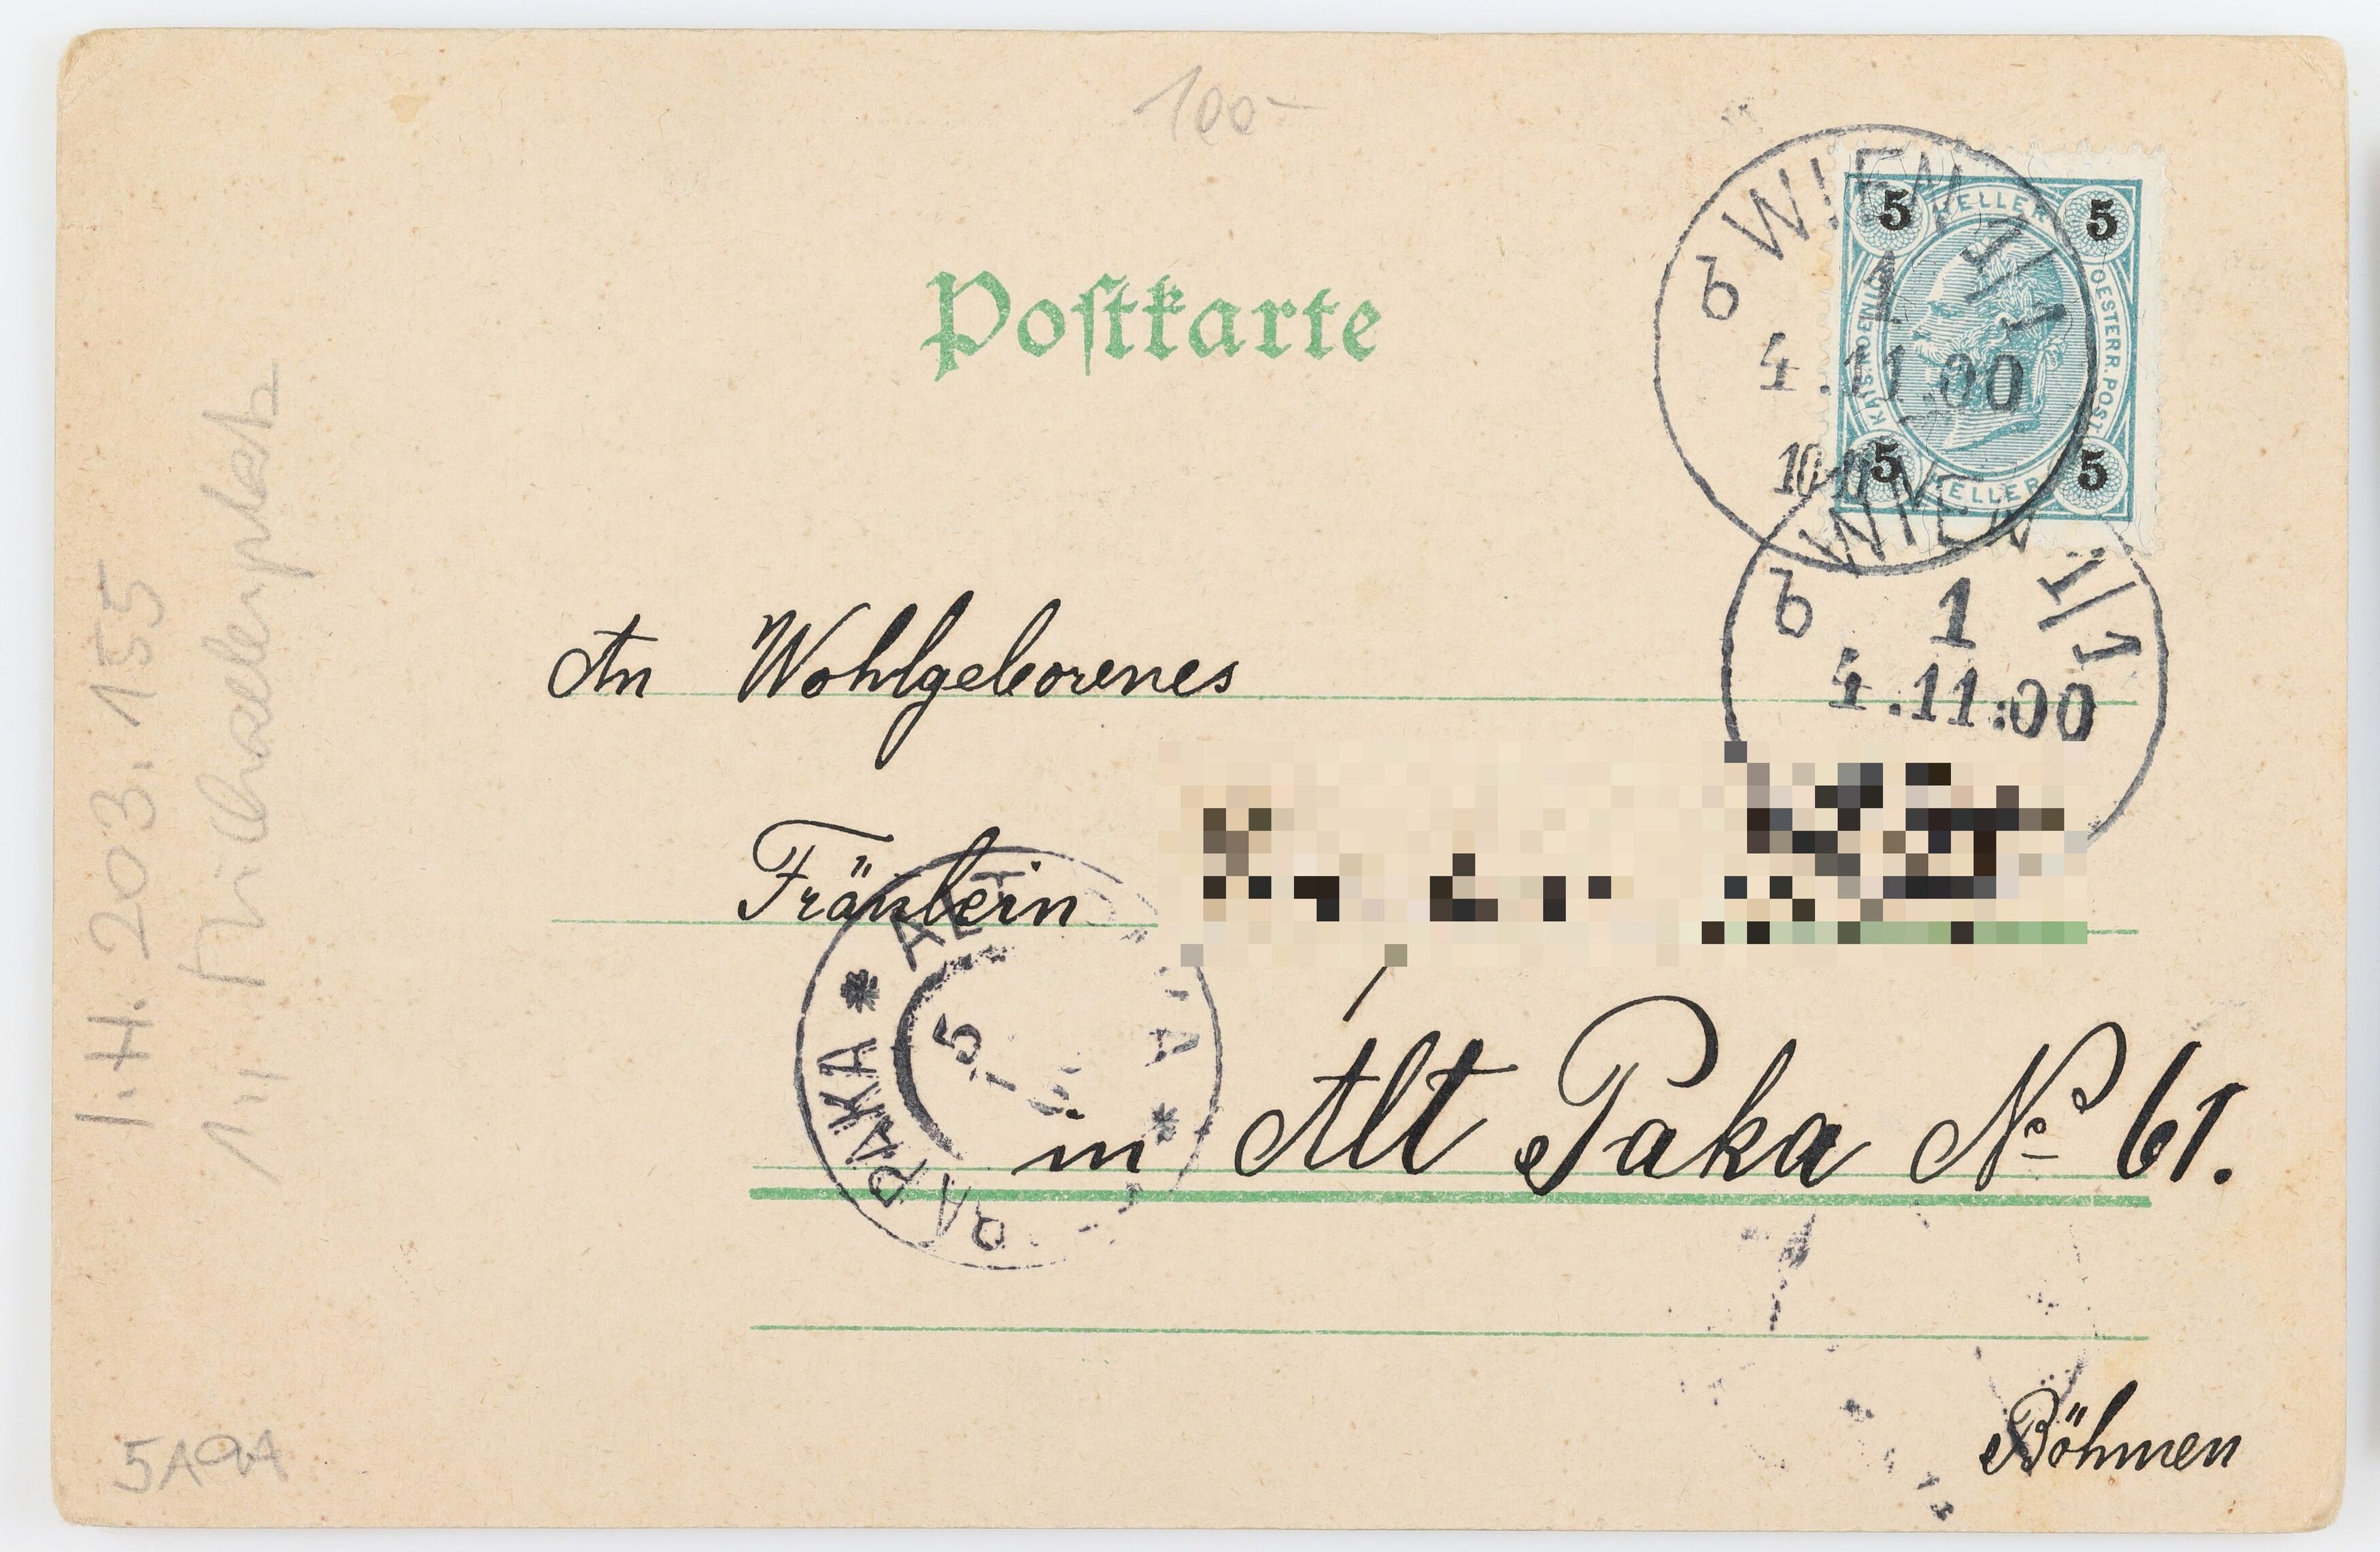 100-
Postkarte
5 HELLER 5
KAIS. KOENIGL. OESTERR. POST
5 HELLER 5
b WIEN 1/1
1
4.11.00
10
b WIEN 1/1
1
4.11.00
An Wohlgeborenes
Fräulein
in Alt Paka Nº 61.
Böhmen
ALT PAKA * STARÁ PAKA *
5
I.H. 203.155
1., Michaelerplatz
5A9A